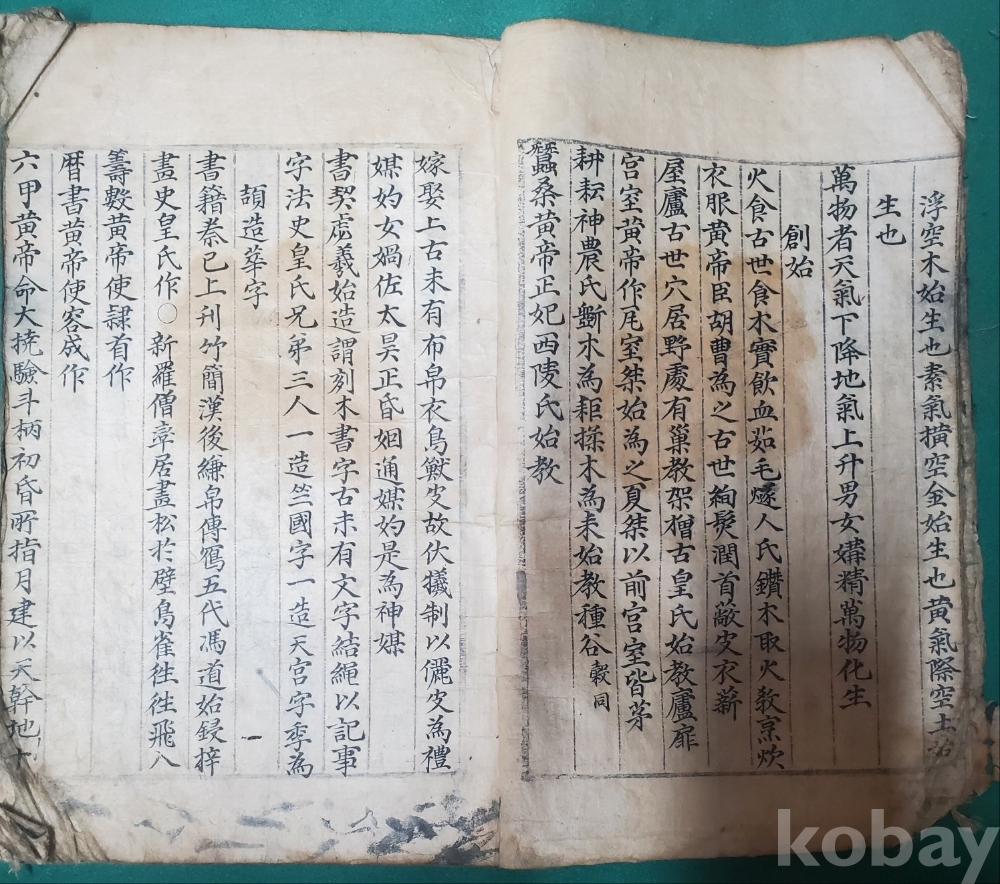 浮空木始生也素氣橫空金始生也黃氣際空土始
生也
萬物者天氣下降地氣上升男女媾精萬物化生
創始
火食古世食木實飮血茹毛燧人氏鑽木取火敎烹炊
衣服黃帝臣胡曹為之古世綯髮潤首蔽皮衣薪
屋廬古世穴居野處有巢敎架橧古皇氏始敎廬扉
宮室黃帝作瓦室桀始為之夏桀以前宮室皆茅
耕耘神農氏斲木為耜揉木為耒始敎種谷穀同
蠶桑黃帝正妃西陵氏始敎
嫁娶上古未有布帛衣鳥獸皮故伏犧制以儷皮為禮
媒妁女媧佐太昊正昏姻通媒妁是為神媒
書契虙羲始造謂刻木書字古未有文字結繩以記事
字法史皇氏兄弟三人一造竺國字一造天宮字季為
頡造華字
書籍秦已上刋竹簡漢後縑帛傳寫五代馮道始鋟梓
畫史皇氏作○新羅僧率居畫松於壁鳥雀徃徃飛入
籌數黃帝使隸首作
曆書黃帝使容成作
六甲黃帝命大撓驗斗柄初昏所指月建以天幹地十
kobay